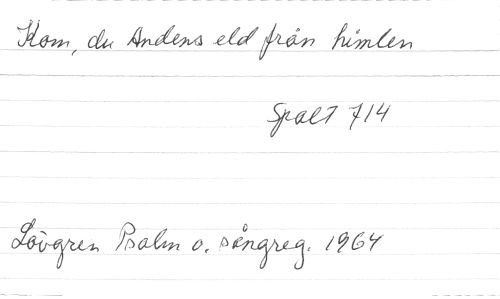 Kom, du Andens eld från himlen
Spalt 714
Lövgren Psalm o. sångreg. 1964